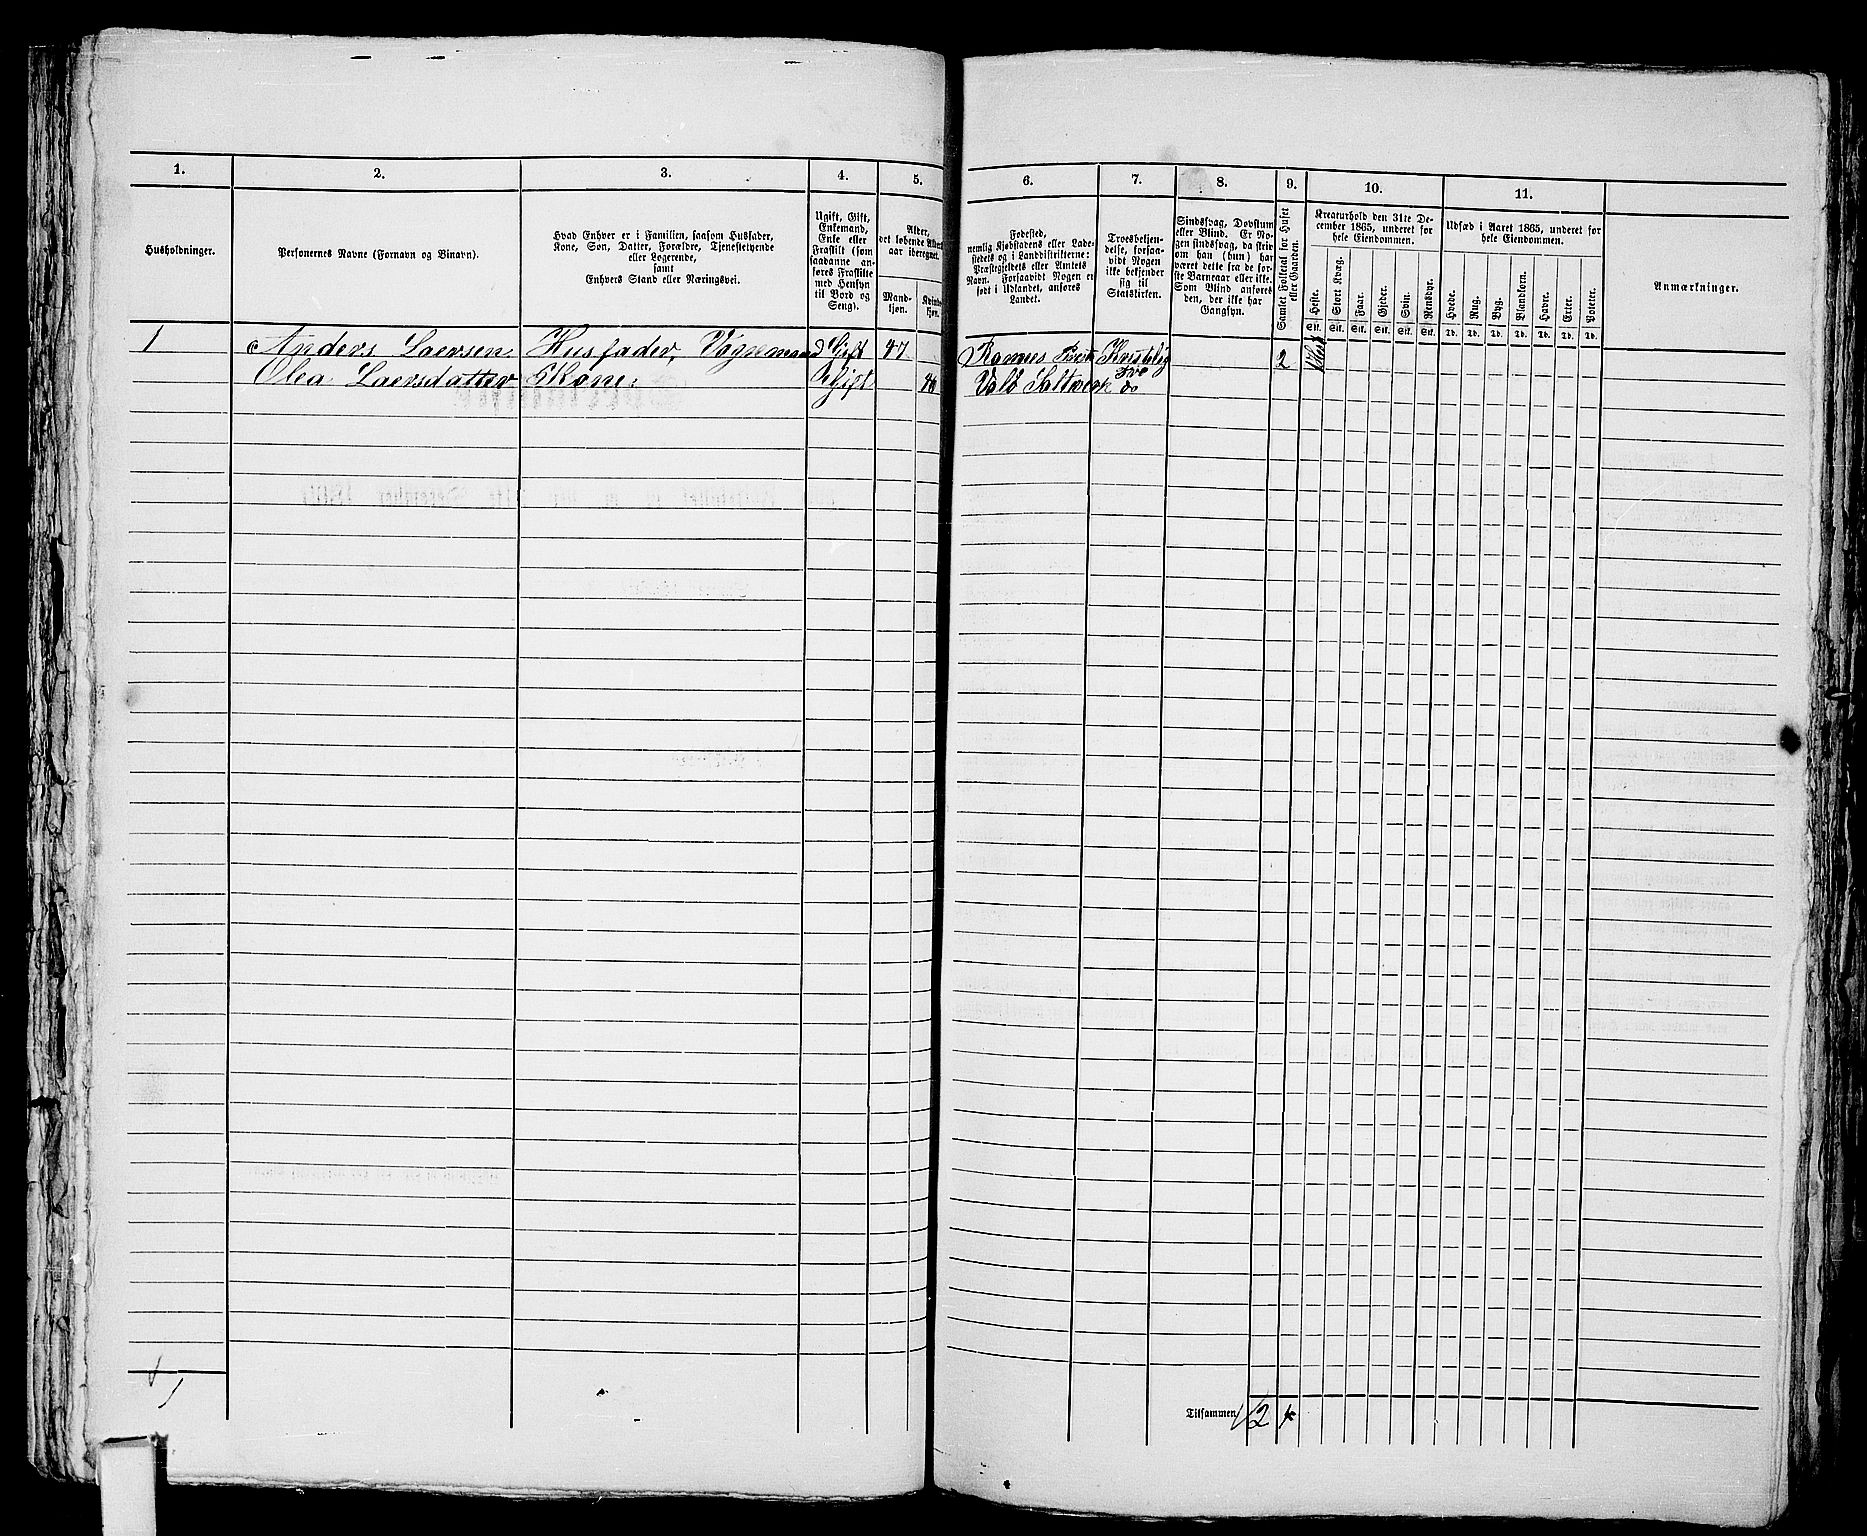 1.
2.
3.
4.
5.
6.
7.
8.
9.
10.
11.
Husholdninger.
Personernes Navne (Fornavn og Binavn).
Hvad Enhver er i Familien, saasom Husfader,
Kone, Søn, Datter, Forældre, Tjenestetyende
eller Logerende,
samt
Enhvers Stand eller Næringsvei.
Ugift, Gift,
Enkemand,
Enke eller
Fraskilt (som
saadanne an-
føres Fraskilte
med Hensyn
til Bord og
Seng).
Alder,
det løbende Alders-
aar iberegnet.
Mand-
kjøn.
Kvinde-
kjøn.
Fødested,
nemlig Kjøbstadens eller Lade-
stedets og i Landdistrikterne:
Præstegjeldets eller Amtets
Navn. Forsaavidt Nogen er
født i Udlandet, anføres
Landet.
Troesbekjen-
delse, forsaa-
vidt Nogen
ikke bekjender
sig til
Statskirken.
Sindssvag, Døvstum
eller Blind. Er No-
gen sindssvag, da skriv
om han (hun) har
været dette fra de før-
ste Barneaar eller ikke.
Som Blind anføres
den, der ikke har
Gangsyn.
Samlet Folketal for Huset
eller Gaarden.
Kreaturhold den 31te De-
cember 1865, underet for
hele Eiendommen.
Heste.
Stort Kvæg.
Faar.
Gjeder.
Svin.
Rensdyr.
Stk. Stk. Stk. Stk. Stk. Stk.
Udsæd i Aaret 1865, underet for
hele Eiendommen.
Hvede.
Rug.
Byg.
Blandkorn.
Havre.
Erter.
Poteter.
Td. Td. Td. Td. Td. Td. Td.
Anmærkninger.
1 Anders Laersen Husfader, Gift 47 Ramnes 2
Olea Laersdatter Kone Gift Valø Saltverk do
Tilsammen 2